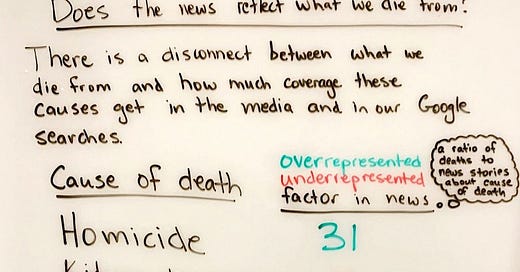 Does the news reflect what we die from?
There is a disconnect between what we
die from and how much coverage these
causes get in the media and in our Google
searches.
Cause of death
overrepresented
underrepresented
factor in news
a ratio of
deaths to
news stories
about cause
of death
Homicide
31